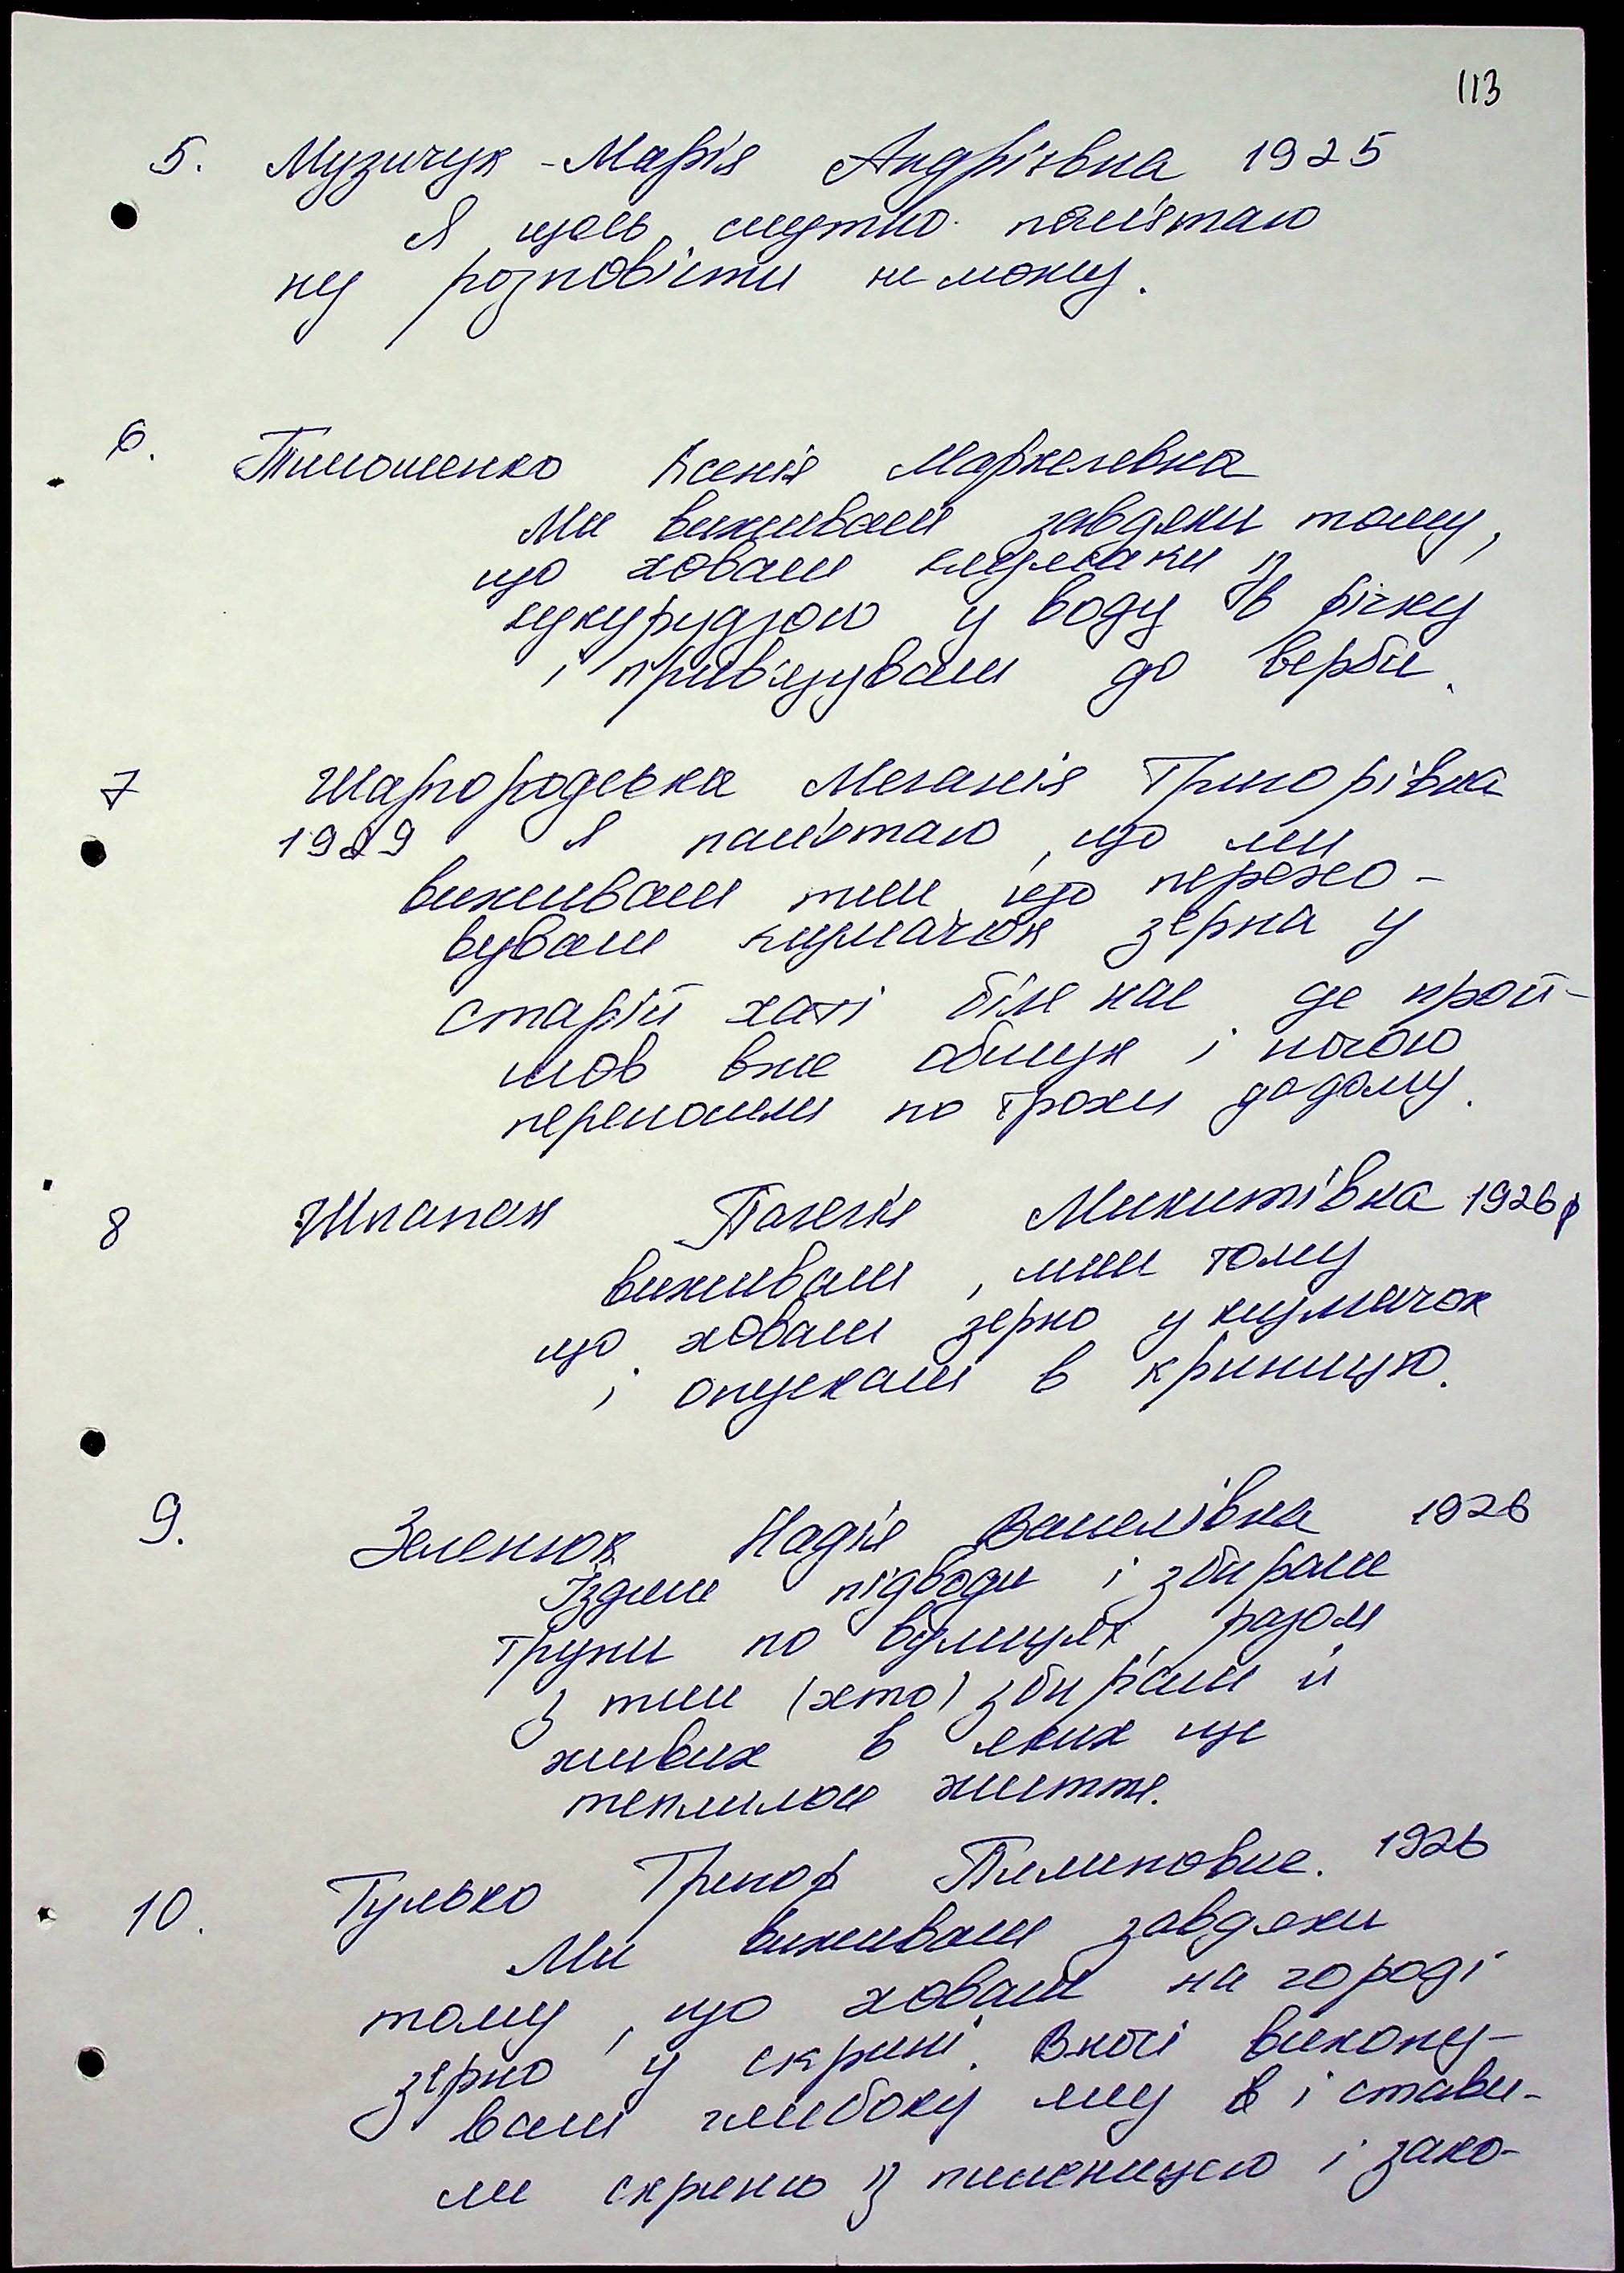 113
5. Музичук - Марія Андріївна 1925
Я щось смутно пам'ятаю
ну розповісти не можу.
6. Тимошенко Ксенія Маркелевна
Ми виживали завдяки тому,
що ховали клумаки із
кукурудзою у воду в річку
і прив'язували до верби.
7 Шаргородська Меланія Григорівна
1929 Я пам'ятаю, що ми
виживали тим що перехо-
вували клумачок зерна у
старій хаті біля нас де прой-
шов вже обшук і ночою
переносили по трохи додому.
8 Шпапак Пелагія Микитівна 1926р
виживали, ми тому
що ховали зерно у клумачок
і опускали в криницю.
9. Зеленюк Надія Василівна 1926
Їздили підводи і збирали
трупи по вулицях, разом
з тим (хто) збирали й
живих в яких ще
теплилось життя.
10. Гулько Григор Пилипович. 1926
Ми виживали завдяки
тому, що ховали на городі
зерно у скрині. Вночі викопу-
вали глибоку яму в і стави-
ли скриню із пшеницею і зако-